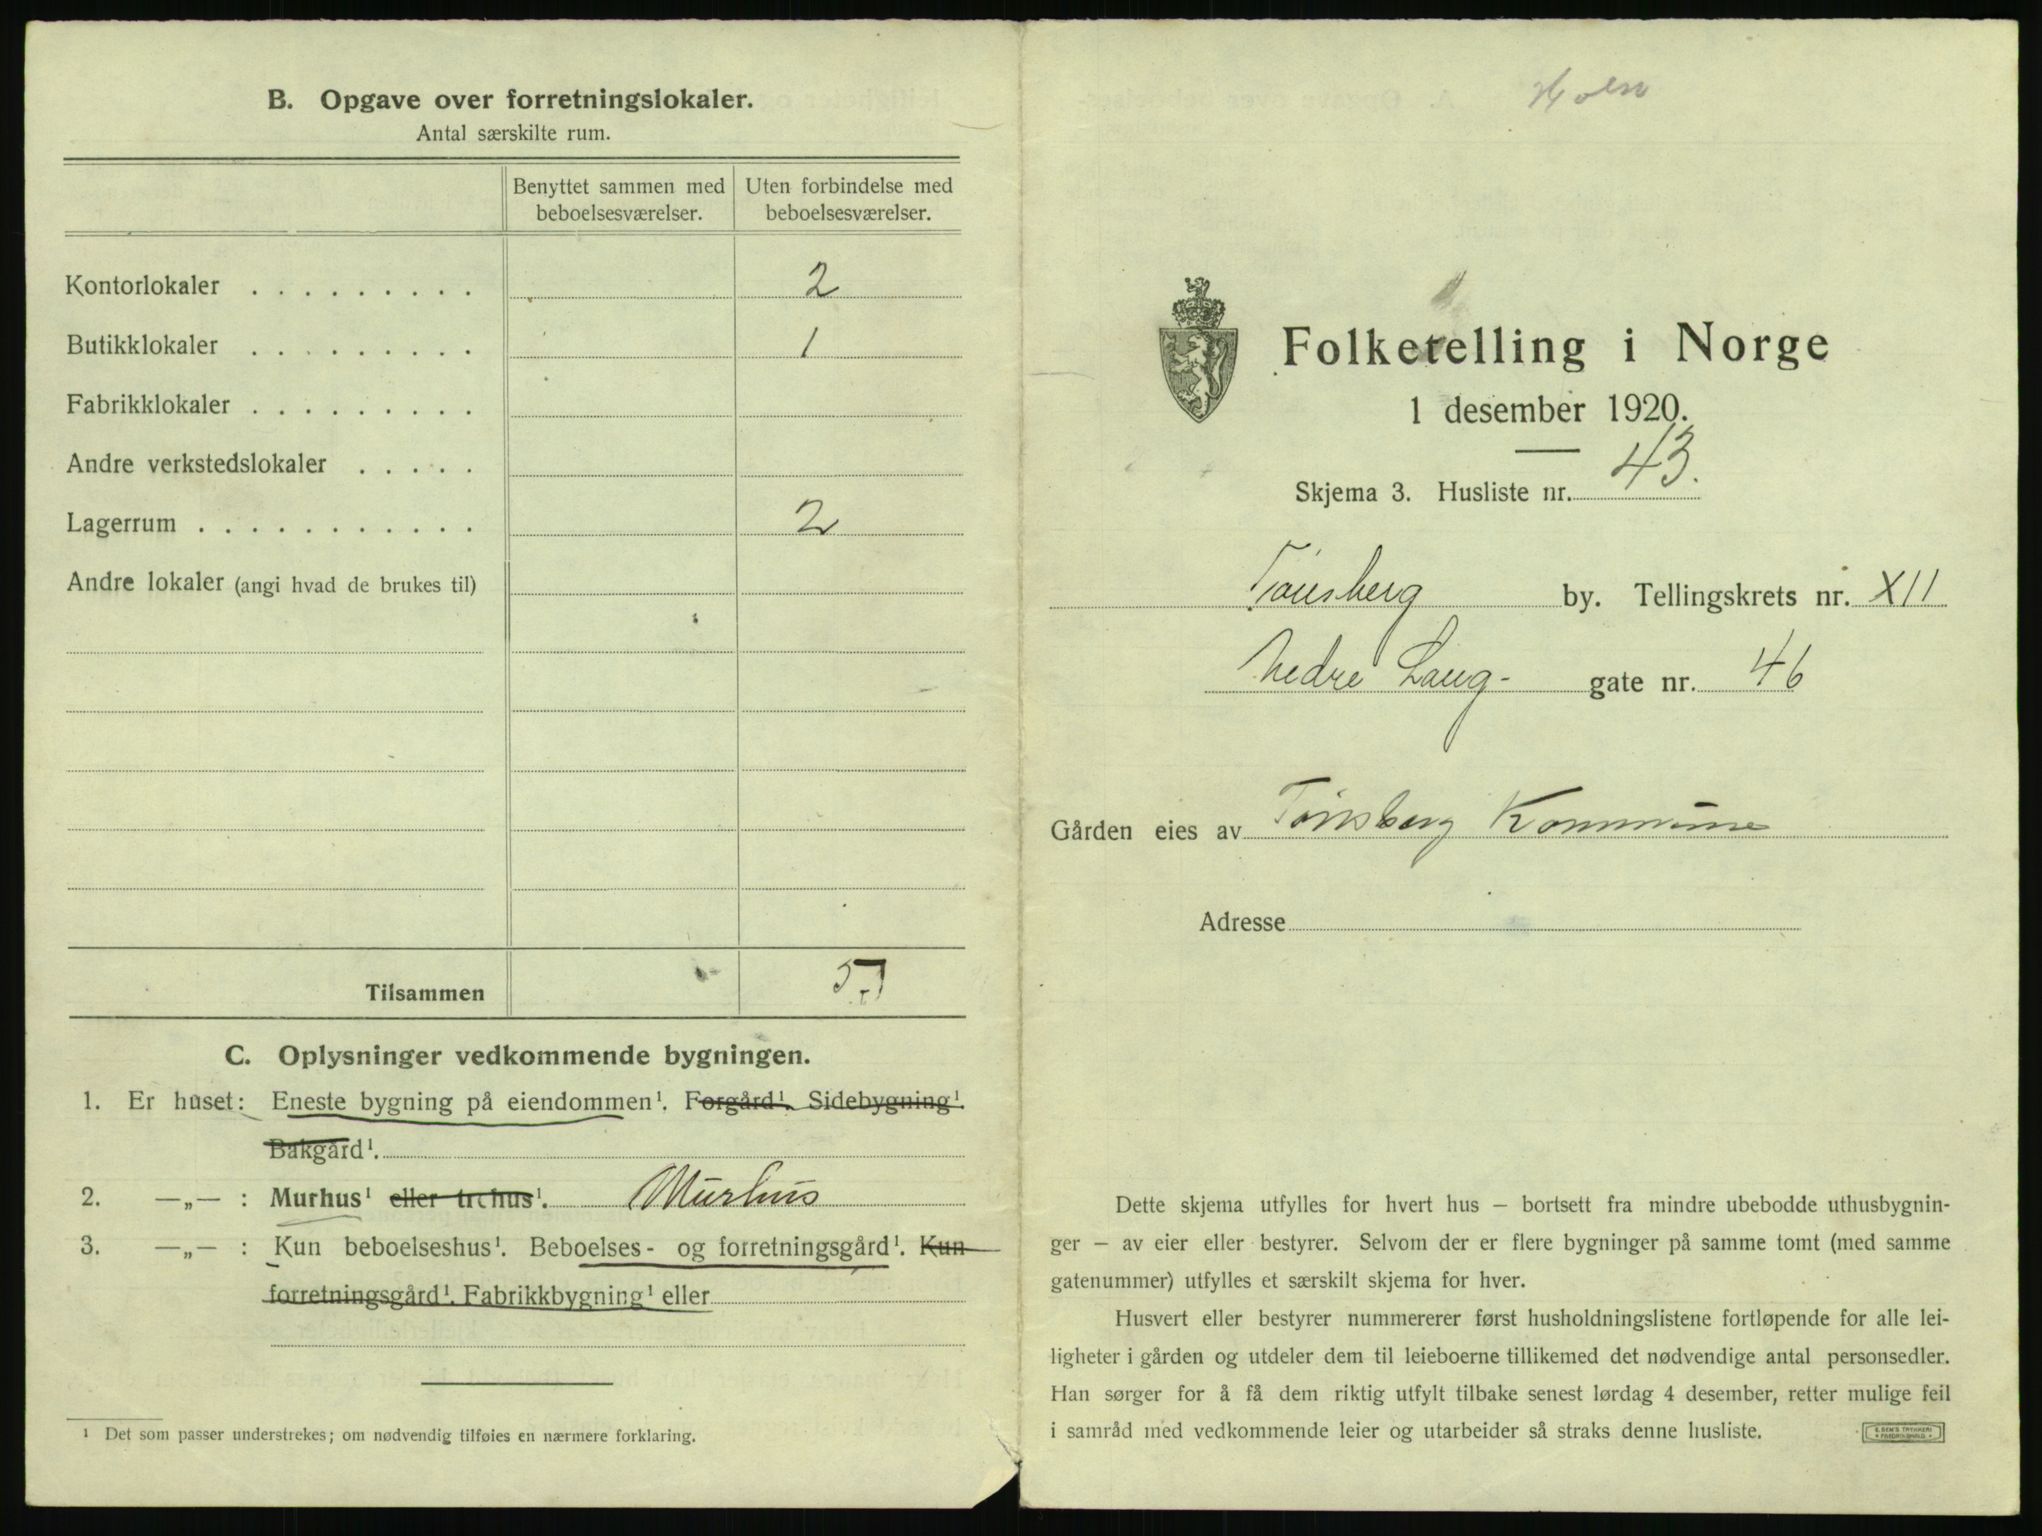 B. Opgave over forretningslokaler.
Antal særskilte rum.
Benyttet sammen med beboelsesværelser.
Uten forbindelse med beboelsesværelser.
Kontorlokaler . . . . . . . . . 2
Butikklokaler . . . . . . . . . 1
Fabrikklokaler . . . . . . . . .
Andre verkstedslokaler . . . . .
Lagerrum . . . . . . . . . . . 2
Andre lokaler (angi hvad de brukes til)
Tilsammen 5
C. Oplysninger vedkommende bygningen.
1. Er huset: Eneste bygning på eiendommen¹. Forgård¹. Sidebygning¹.
Bakgård¹.
2. —„— : Murhus¹ eller trehus¹. Murhus
3. —„— : Kun beboelseshus¹. Beboelses- og forretningsgård¹. Kun
forretningsgård¹. Fabrikkbygning¹ eller
¹ Det som passer understrekes; om nødvendig tilføies en nærmere forklaring.
Holm
Folketelling i Norge
1 desember 1920.
Skjema 3. Husliste nr. 43.
Tønsberg by. Tellingskrets nr. XII
Nedre Lang- gate nr. 46
Gården eies av Tønsberg Kommune
Adresse
Dette skjema utfylles for hvert hus — bortsett fra mindre ubebodde uthusbygnin-
ger — av eier eller bestyrer. Selvom der er flere bygninger på samme tomt (med samme
gatenummer) utfylles et særskilt skjema for hver.
Husvert eller bestyrer nummererer først husholdningslistene fortløpende for alle lei-
ligheter i gården og utdeler dem til leieboerne tillikemed det nødvendige antal personsedler.
Han sørger for å få dem riktig utfylt tilbake senest lørdag 4 desember, retter mulige feil
i samråd med vedkommende leier og utarbeider så straks denne husliste.
E. SEM'S TRYKKERI
FREDRIKSHALD